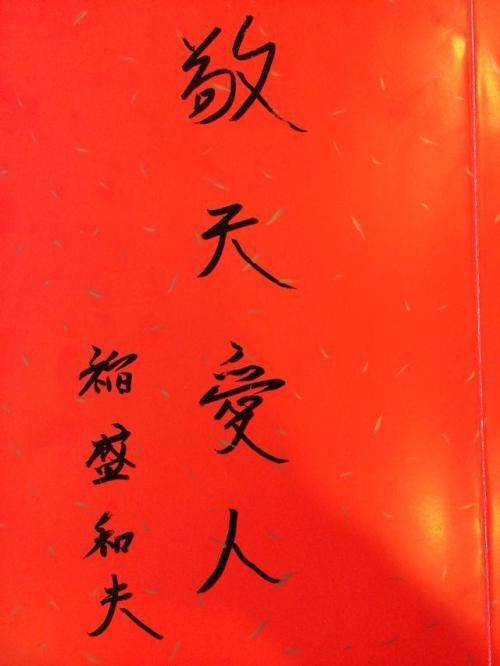 敬天愛人
稻盛和夫